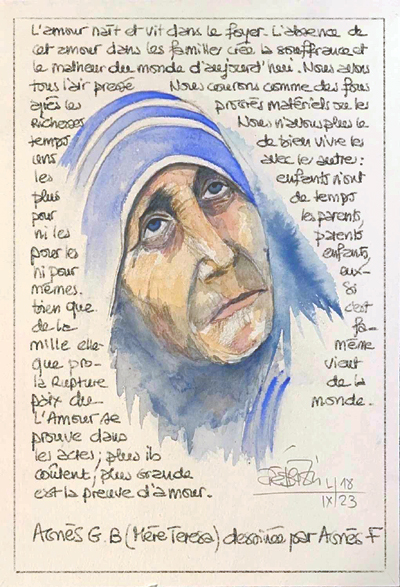 L'amour naît et vit dans le foyer. L'absence de
cet amour dans les familles crée la souffrance et
le malheur du monde d'aujourd'hui. Nous avons
tous l'air pressé Nous courons comme des fous
après les progrès matériels ou les
Richesses Nous n'avons plus le
temps de bien vivre les
uns avec les autres :
les enfants n'ont
plus de temps
pour les parents,
ni les parents
pour les enfants,
ni pour eux-
mêmes. Si
bien que c'est
de la fa-
mille elle- même
que pro- vient
la Rupture de la
paix du monde.
L'Amour se
prouve dans
les actes ; plus ils
coûtent, plus grande
est la preuve d'amour.
L/18
IX/23
Agnès G.B (Mère Teresa) dessinée par Agnès F